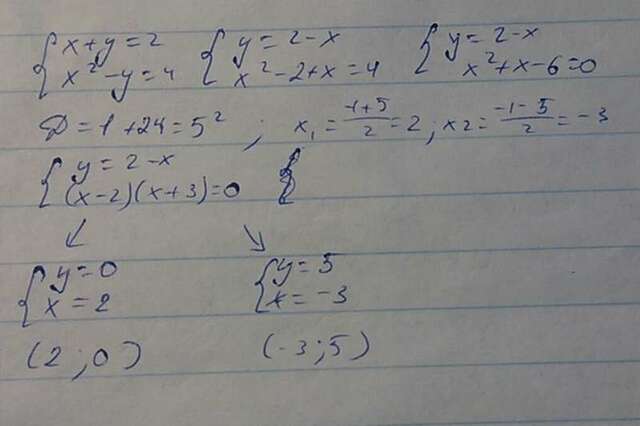 { x+y=2 { y=2-x { y=2-x
x²-y=4 x²-2+x=4 x²+x-6=0
D=1+24=5² ; x₁=(-1+5)/2=2; x2=(-1-5)/2=-3
{ y=2-x {
(x-2)(x+3)=0
↙ ↘
{ y=0 { y=5
x=2 x=-3
(2;0) (-3;5)